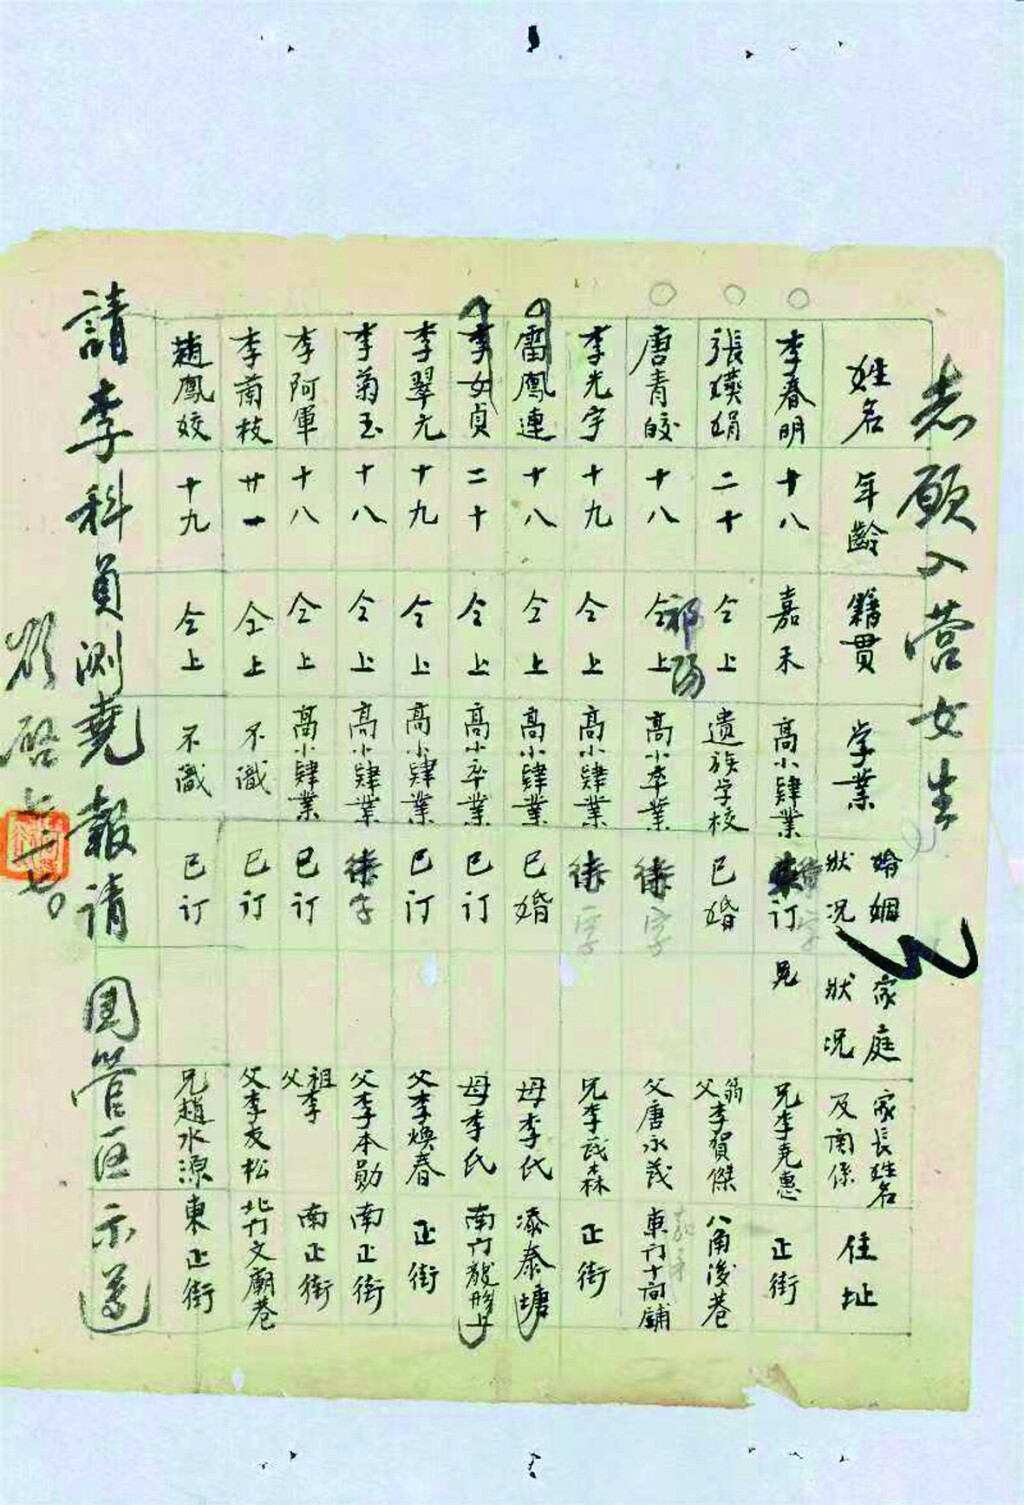 志願入营女生
姓名 年齡 籍貫 学業 婚姻狀况 家庭狀况 家長姓名及関係 住址
李春明 十八 嘉禾 高小肄業 訂 兄 兄李克惠 正街
張媖娟 二十 仝上 遺族学校 已婚 翁父李賀傑 八角後巷
唐青皎 十八 仝上 祁陽 高小卒業 待字 父唐永茂 東门十间舖
李光宇 十九 仝上 高小肄業 待字 兄李茂森 正街
雷鳳連 十八 仝上 高小肄業 已婚 母李氏 添泰塘
李女貞 二十 仝上 高小卒業 已订 母李氏 南门龍形上
李翠元 十九 仝上 高小肄業 已订 父李煥春 正街
李菊玉 十八 仝上 高小肄業 待字 父李本勛 南正街
李阿軍 十八 仝上 高小肄業 已订 祖父李 南正街
李蘭枝 廿一 仝上 不識 已订 父李友松 北门文廟巷
趙鳳姣 十九 仝上 不識 已订 兄趙水源 東正街
請李科員測 報请 团管区示遵
啓 七、一七。